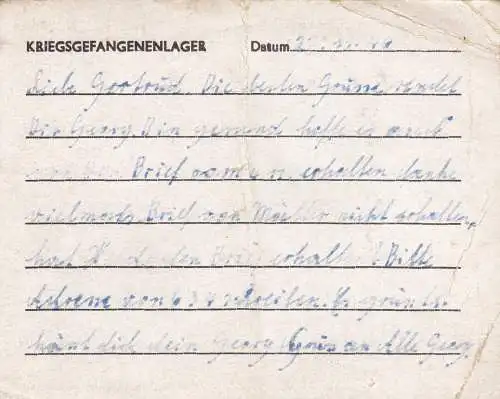 KRIEGSGEFANGENENLAGER Datum
Liebe Gertrud. Die besten Grüße sendet
Dir Georg. Bin gesund hoffe es auch
Brief vom erhalten danke
vielmals. Brief von Mutter nicht erhalten,
hast Du Brief erhalten? Bitte
Adresse von schreiben. Es grüßt u.
küßt dich dein Georg Gruß an Alle Georg